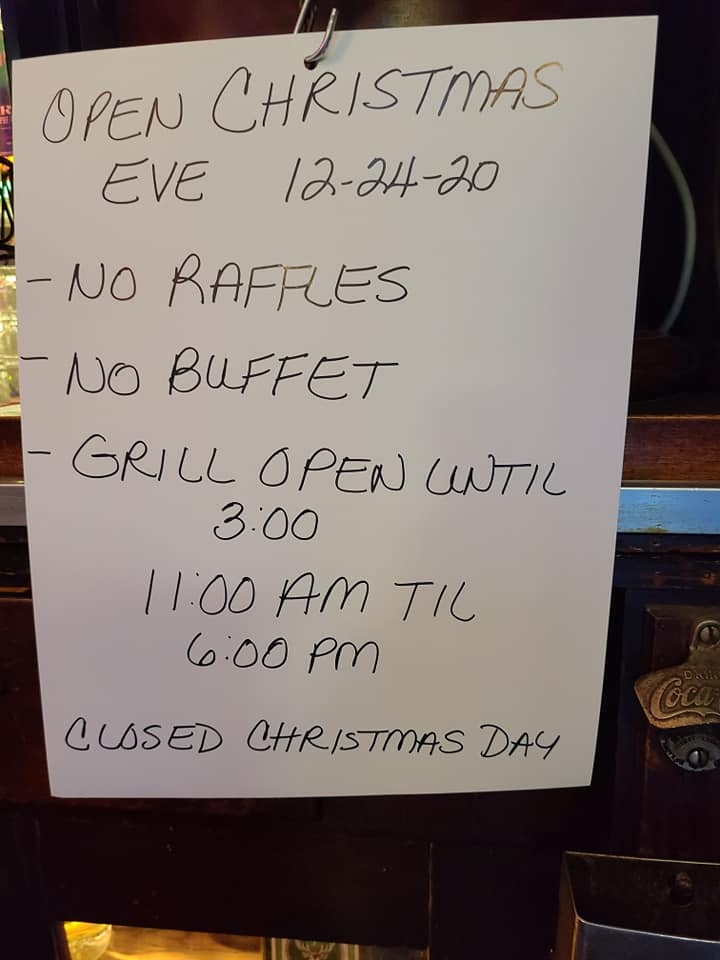 OPEN CHRISTMAS
EVE 12-24-20
- NO RAFFLES
- NO BUFFET
- GRILL OPEN UNTIL
3:00
11:00 AM TIL
6:00 PM
CLOSED CHRISTMAS DAY
Coca